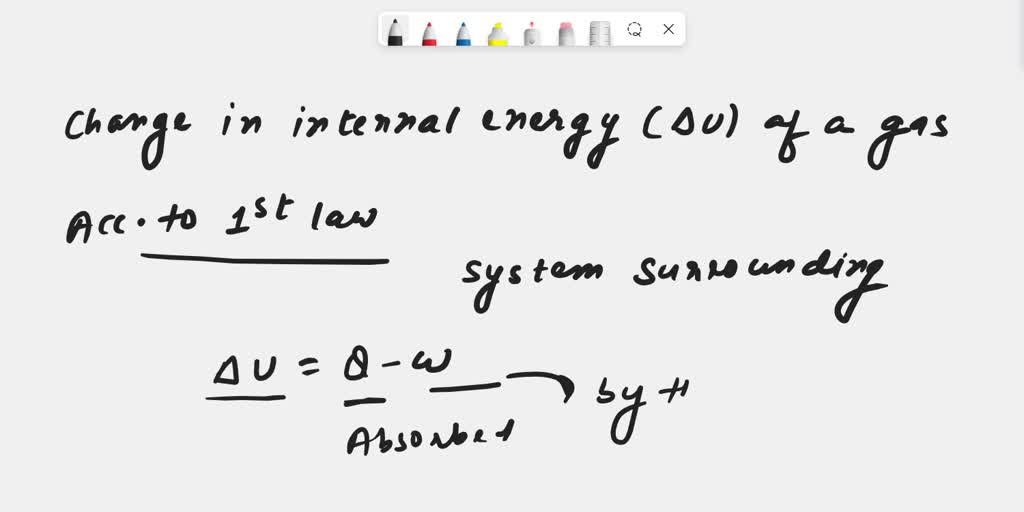 Change in internal energy (ΔU) of a gas
Acc. to 1st law
system surrounding
ΔU = Q - W
by
Absorbed